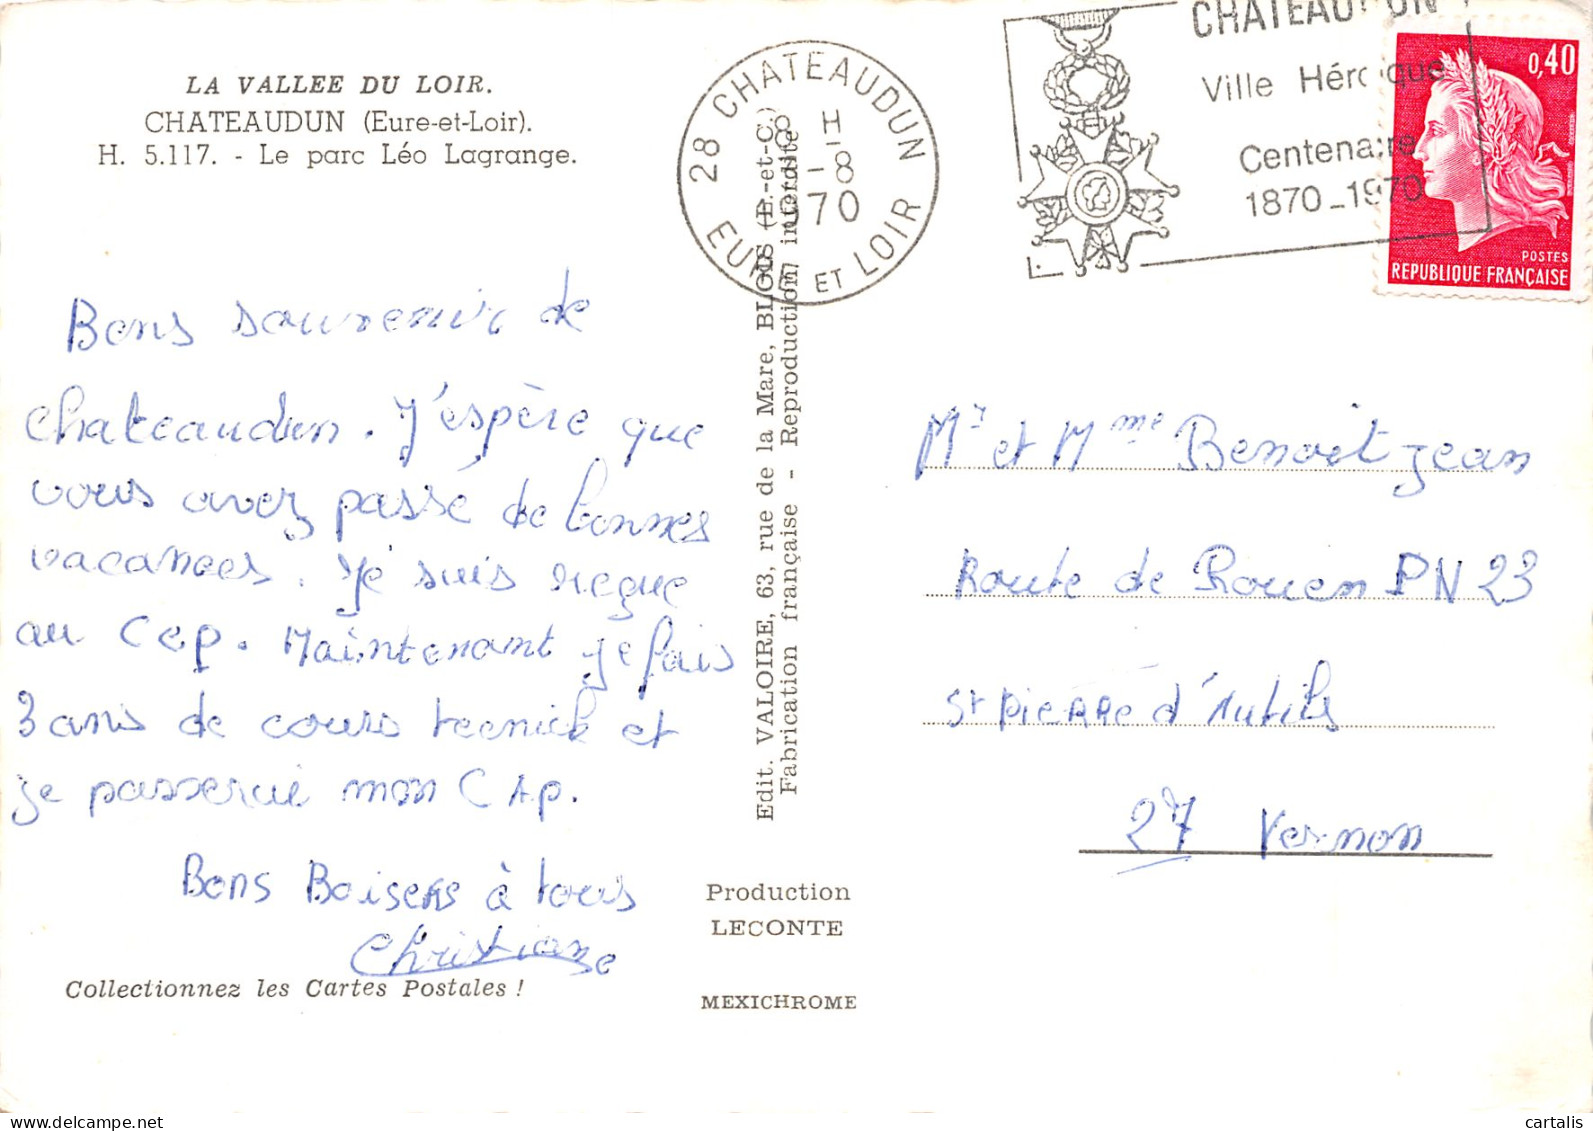 LA VALLEE DU LOIR.
CHATEAUDUN (Eure-et-Loir).
H. 5.117. - Le parc Léo Lagrange.
Bons souvenir de
chateaudun. J'espère que
vous avez passé de bonnes
vacances. Je suis reçue
au Cep. Maintenant je fais
3 ans de cours tecnick et
je passerai mon CAp.
Bons Baisers à tous
Christiane
Collectionnez les Cartes Postales !
Edit. VALOIRE, 63, rue de la Mare, BLOIS (L.-et-C.)
Fabrication française - Reproduction interdite
Production
LECONTE
MEXICHROME
28 CHATEAUDUN
18 H
-8
1970
EURE ET LOIR
CHATEAUDUN
Ville Héroïque
Centenaire
1870-1970
0,40
POSTES
REPUBLIQUE FRANÇAISE
Mr et Mme Benoit Jean
Route de Rouen PN 23
St PiERRe d'Autils
27 Vernon
cartalis